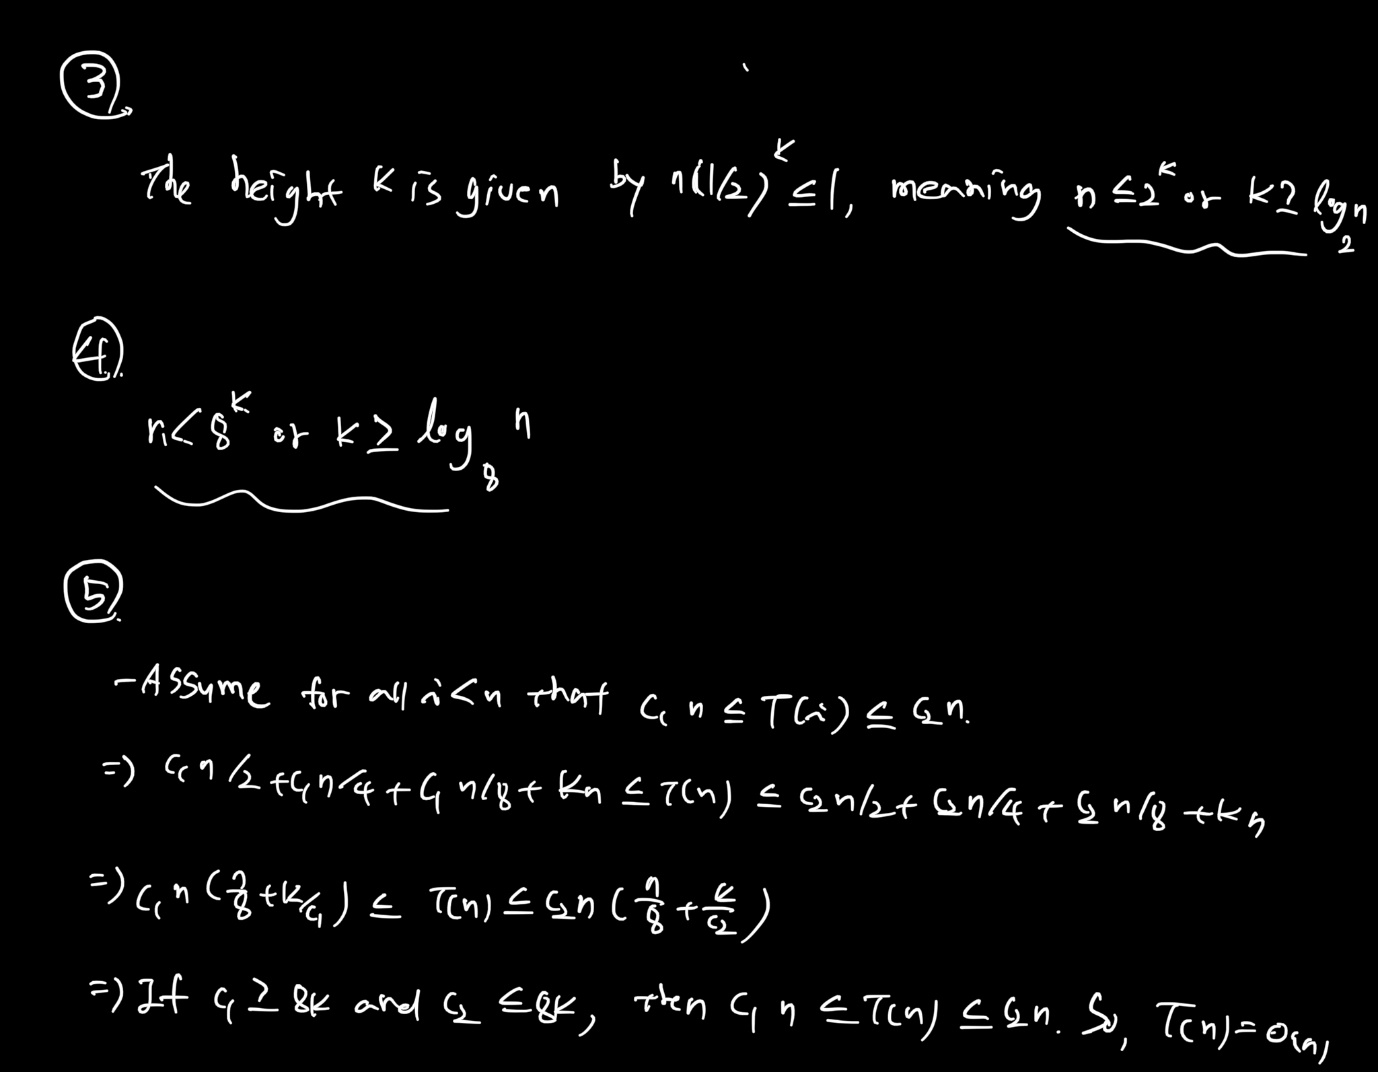 ③
The height k is given by n(1/2)^k ≤ 1, meaning n ≤ 2^k or k ≥ log_2 n
④
n < 8^k or k ≥ log_8 n
⑤
- Assume for all i < n that c_1 n ≤ T(i) ≤ c_2 n.
=) c_1 n/2 + c_1 n/4 + c_1 n/8 + kn ≤ T(n) ≤ c_2 n/2 + c_2 n/4 + c_2 n/8 + kn
=) c_1 n (7/8 + k/c_1) ≤ T(n) ≤ c_2 n (7/8 + k/c_2)
=) If c_1 ≥ 8k and c_2 ≤ 8k, then c_1 n ≤ T(n) ≤ c_2 n. So, T(n) = Θ(n)